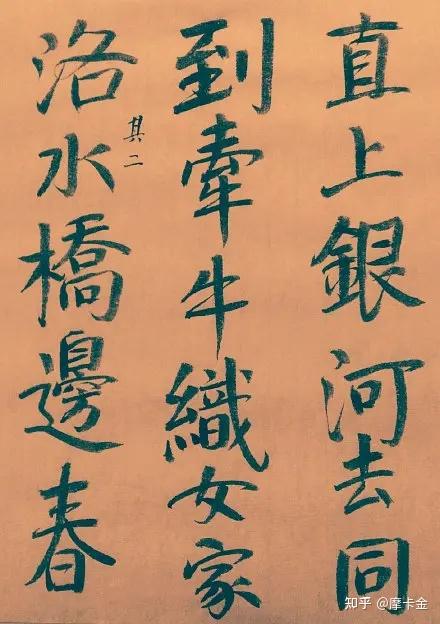 直上銀河去同
到牽牛織女家
其二
洛水橋邊春
知乎 @摩卡金